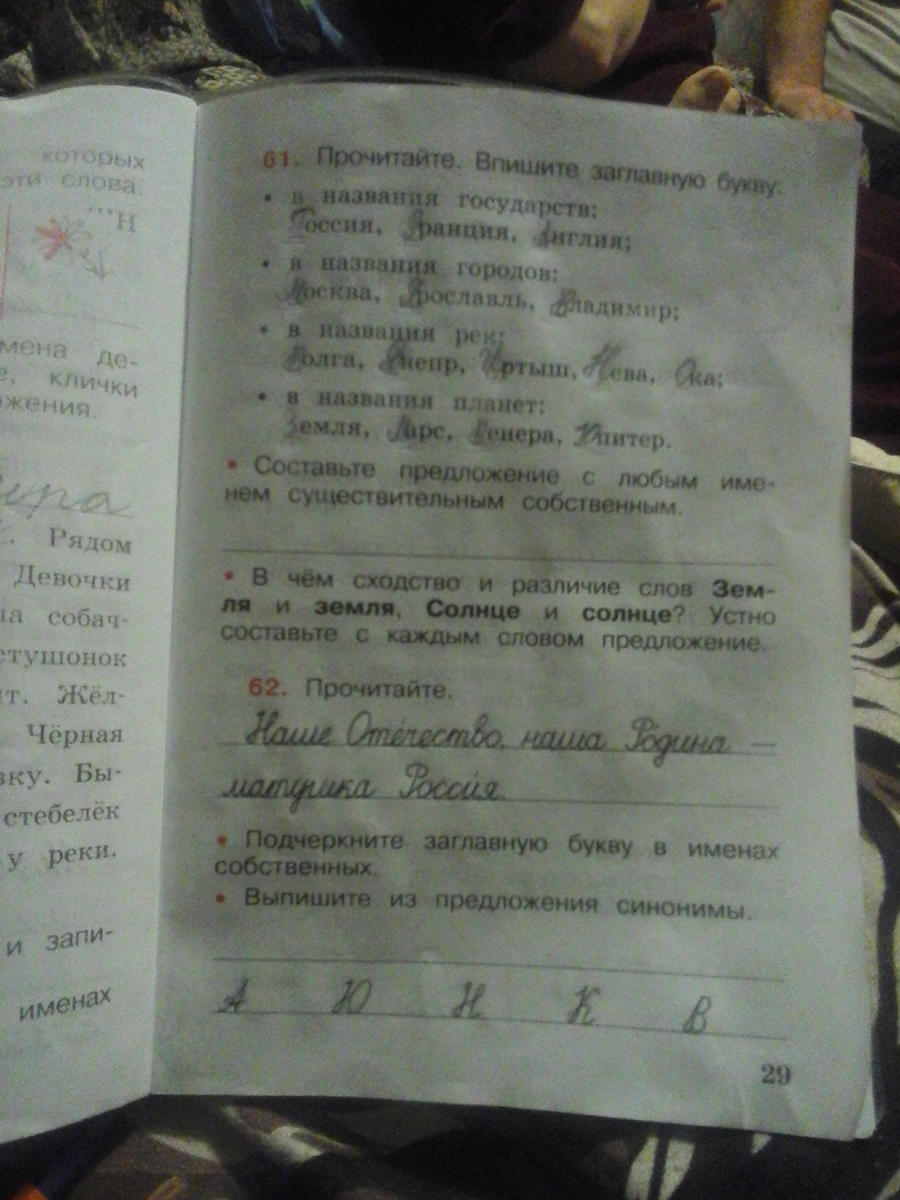 которых
эти слова.
Н...
мена де-
е, клички
ожения.
ира
Рядом
Девочки
ла собач-
стушонок
ит. Жёл-
Чёрная
вку. Бы-
стебелёк
у реки.
и запи-
именах
61. Прочитайте. Впишите заглавную букву:
• в названия государств:
Россия, Франция, Англия;
• в названия городов:
Москва, Ярославль, Владимир;
• в названия рек:
Волга, Днепр, Иртыш, Нева, Ока;
• в названия планет:
Земля, Марс, Венера, Юпитер.
• Составьте предложение с любым име-
нем существительным собственным.
• В чём сходство и различие слов Зем-
ля и земля, Солнце и солнце? Устно
составьте с каждым словом предложение.
62. Прочитайте.
Наше Отечество, наша Родина —
матушка Россия.
• Подчеркните заглавную букву в именах
собственных.
• Выпишите из предложения синонимы.
А Ю Н К В
29